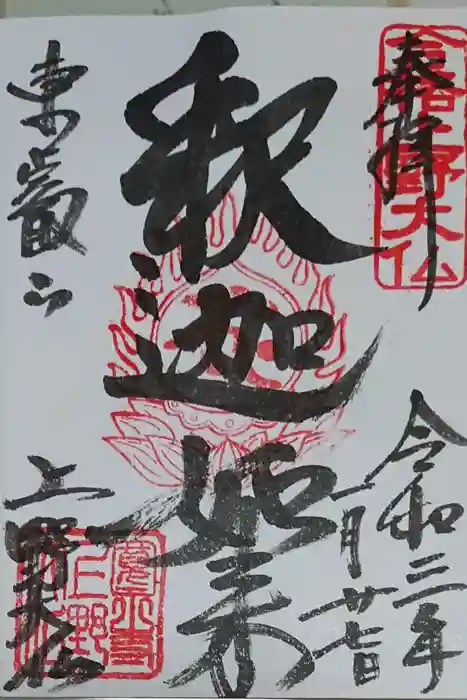 奉拝
合格上野大仏
令和三年
一月廿七日
釈迦如来
東叡山
上野大仏
寛永寺
上野